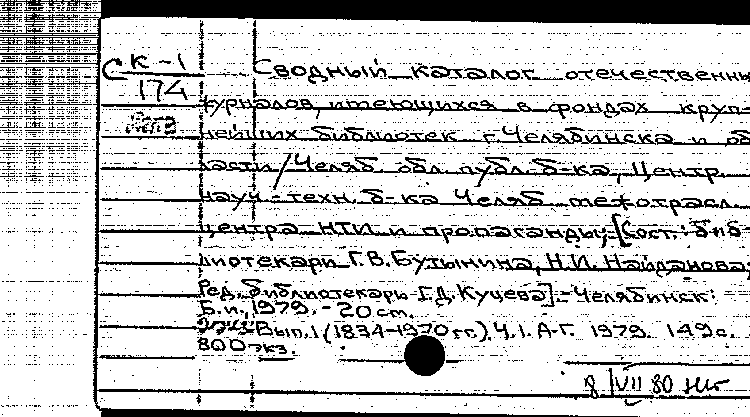 С К-1
174
Сводный каталог отечественны
журналов, имеющихся в фондах круп-
нейших библиотек г. Челябинска и об
ласти / Челяб. обл. публ. б-ка, Центр.
науч.-техн. б-ка Челяб. межотрасл.
центра НТИ и пропаганды; [Сост.: биб-
лиотекари Г.В. Бутынина, Н.И. Найданова;
Ред. библиотекарь Г.Д. Куцева]. - Челябинск:
Б.и., 1979. - 20 см.
Вып. 1 (1834-1970 гг.). Ч. 1. А-Г. 1979. 149 с.
800 экз.
8/VII 80